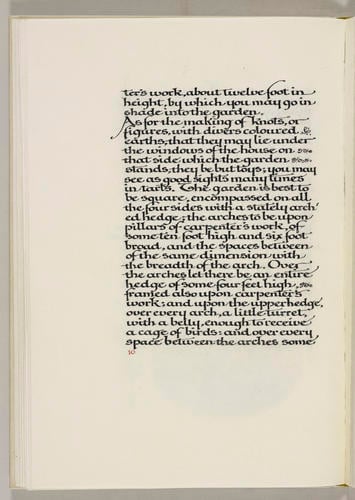 ter's work, about twelve foot in
height, by which you may go in
shade into the garden.
As for the making of knots, or
figures, with divers coloured
earths, that they may lie under
the windows of the house on
that side which the garden
stands, they be but toys; you may
see as good sights many times
in tarts. The garden is best to
be square, encompassed on all
the four sides with a stately arch
ed hedge; the arches to be upon
pillars of carpenter's work, of
some ten foot high and six foot
broad, and the spaces between
of the same dimension with
the breadth of the arch. Over
the arches let there be an entire
hedge of some four feet high,
framed also upon carpenter's
work; and upon the upper hedge,
over every arch, a little turret,
with a belly, enough to receive
a cage of birds: and over every
space between the arches some
10